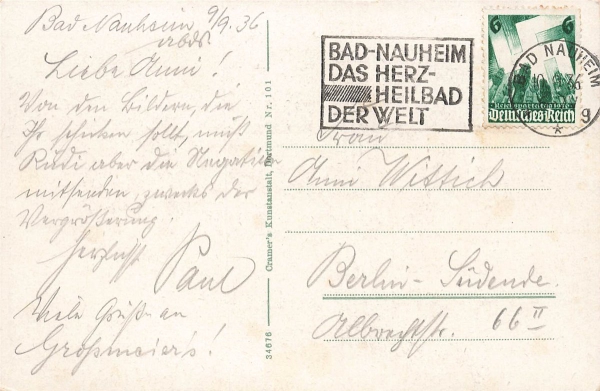 Bad Nauheim 9/9. 36
abds.
Liebe Anni!
Von den Bildern, die
Ihr schicken sollt, muß
Rudi aber die Negative
mitsenden, zwecks der
Vergrößerung.
Herzlichst
Paul
Viele Grüße an
Großmaier's!
34676 Cramer's Kunstanstalt, Dortmund Nr. 101
BAD-NAUHEIM
DAS HERZ-
HEILBAD
DER WELT
6 6
Reichsparteitag 1936
Deutsches Reich
BAD NAUHEIM
g
Frau
Anni Wittich
Berlin-Südende.
Albrechtstr. 66 II